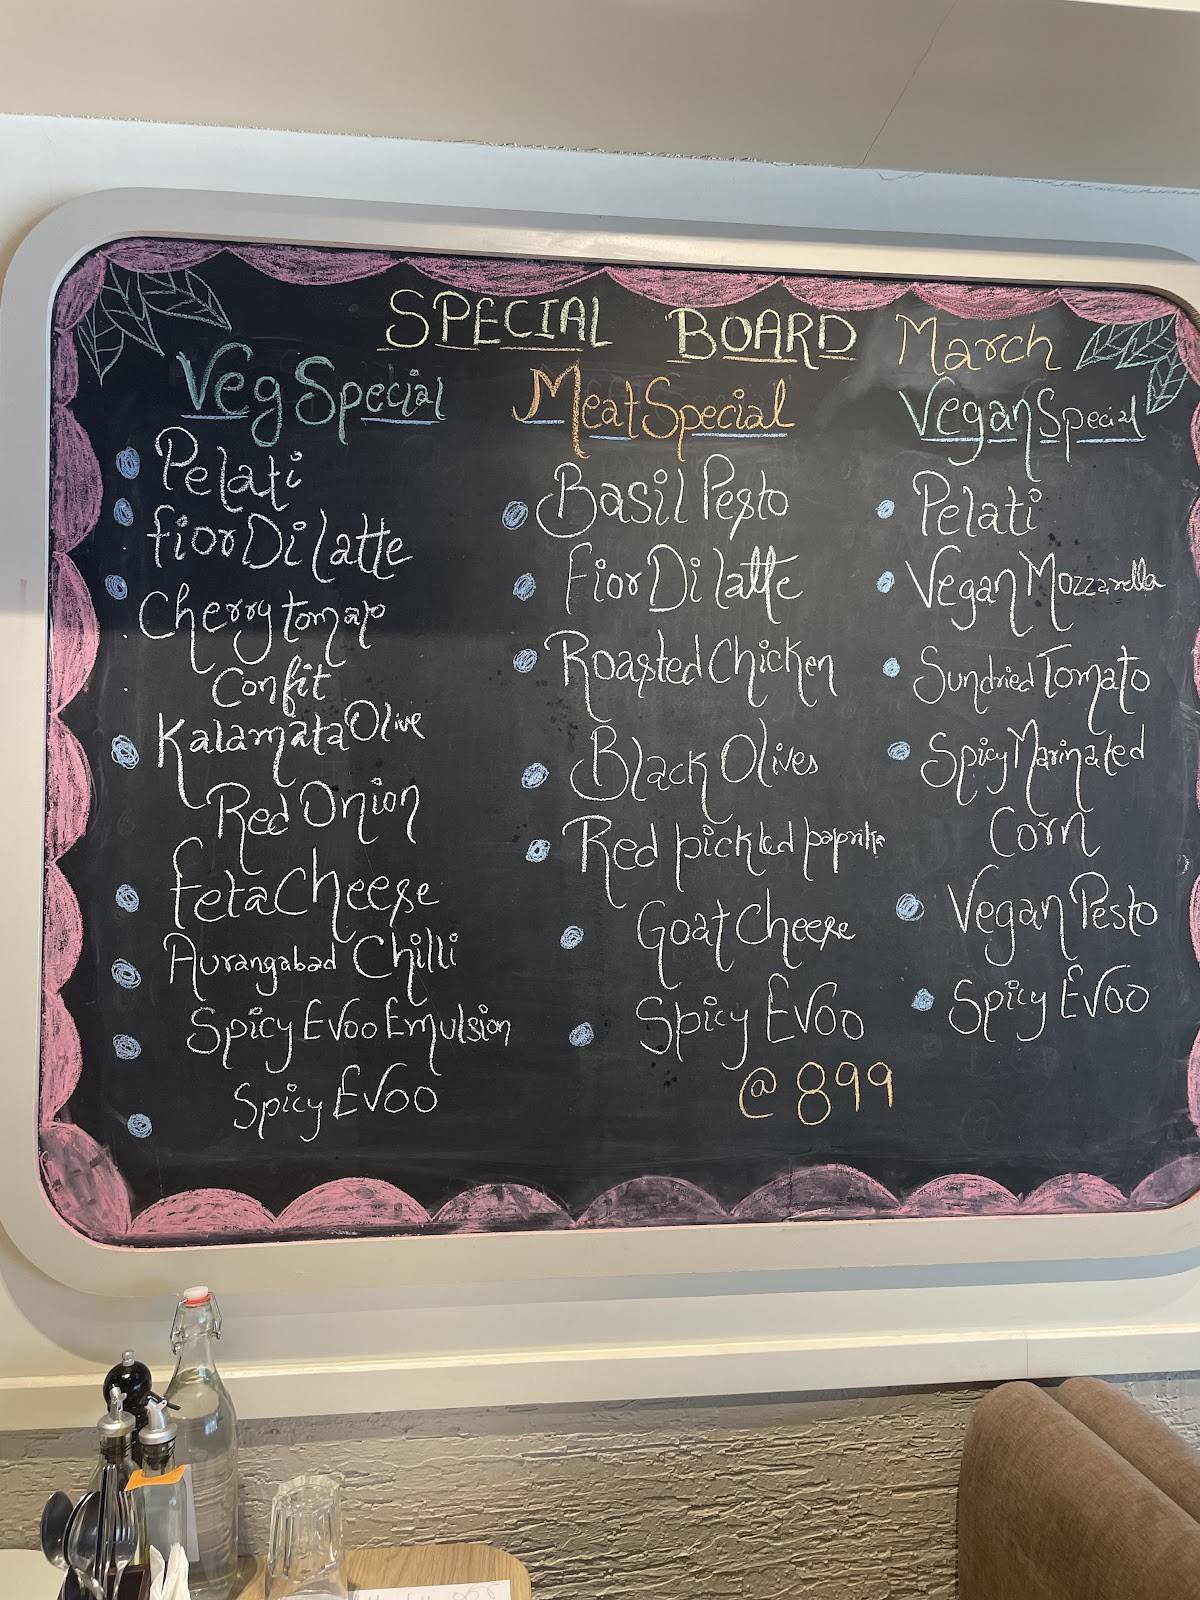 SPECIAL BOARD March
Veg Special
Pelati
Fior Di Latte
Cherry tomato
Confit
Kalamata Olive
Red Onion
Feta Cheese
Aurangabad Chilli
Spicy EVOO Emulsion
Spicy EVOO
Meat Special
Basil Pesto
Fior Di latte
Roasted Chicken
Black Olives
Red pickled paprika
Goat Cheese
Spicy EVOO
@ 899
Vegan Special
Pelati
Vegan Mozzarella
Sundried Tomato
Spicy Marinated
Corn
Vegan Pesto
Spicy EVOO